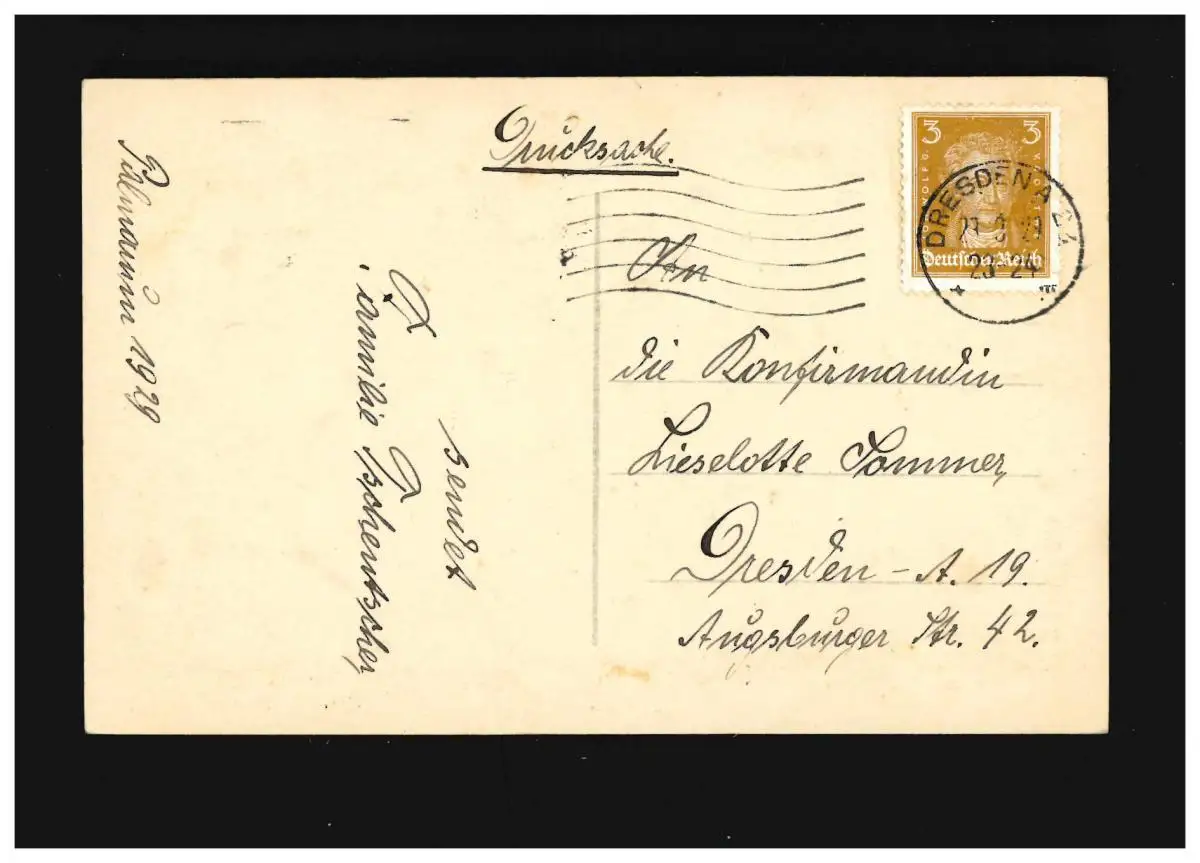 Palmarum 1929
sendet
Familie Tschentscher,
Drucksache.
An
die Konfirmandin
Lieselotte Sommer,
Dresden - A. 19.
Augsburger Str. 42.
3 3
Deutsches Reich
DRESDEN A 24